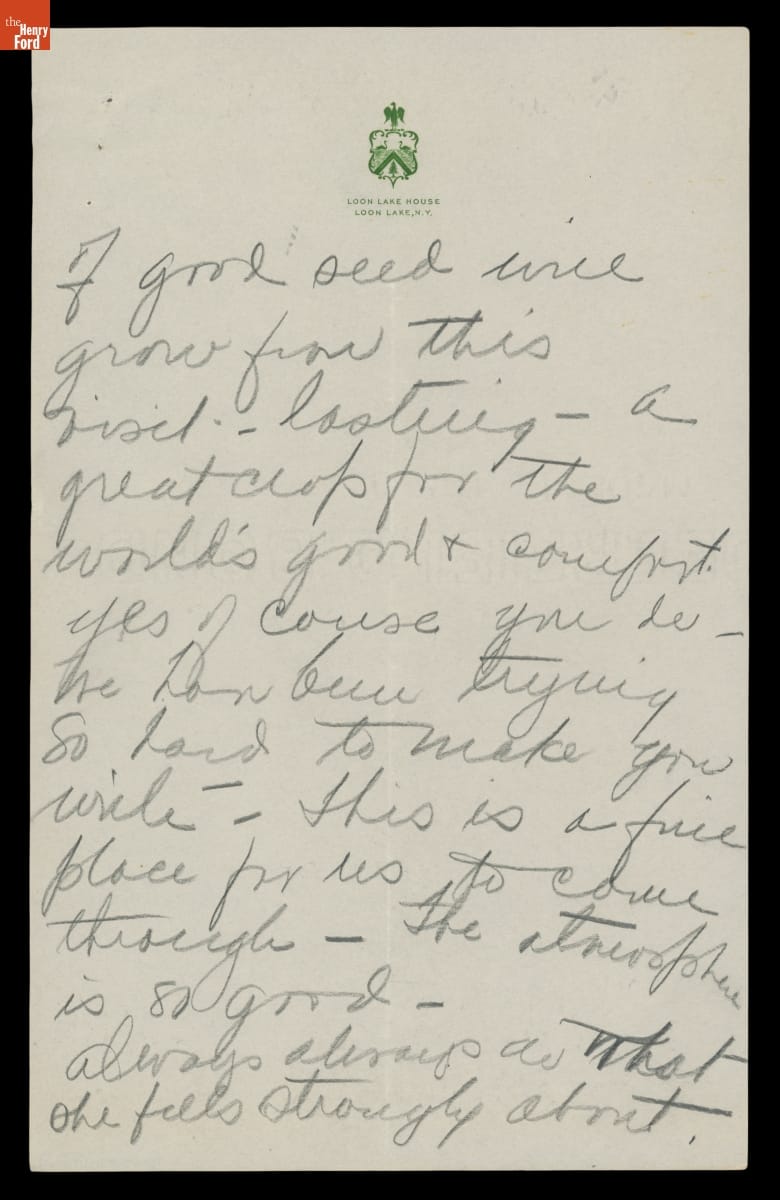 the
Henry
Ford
LOON LAKE HOUSE
LOON LAKE, N.Y.
If good seed will
grow from this
visit. - lasting - a
great crop for the
world's good + comfort.
yes of couse you do -
We have been trying
so hard to make you
write - - this is a fine
place for us to come
through - The atmosphere
is so good -
always always do what
she feels strongly about.